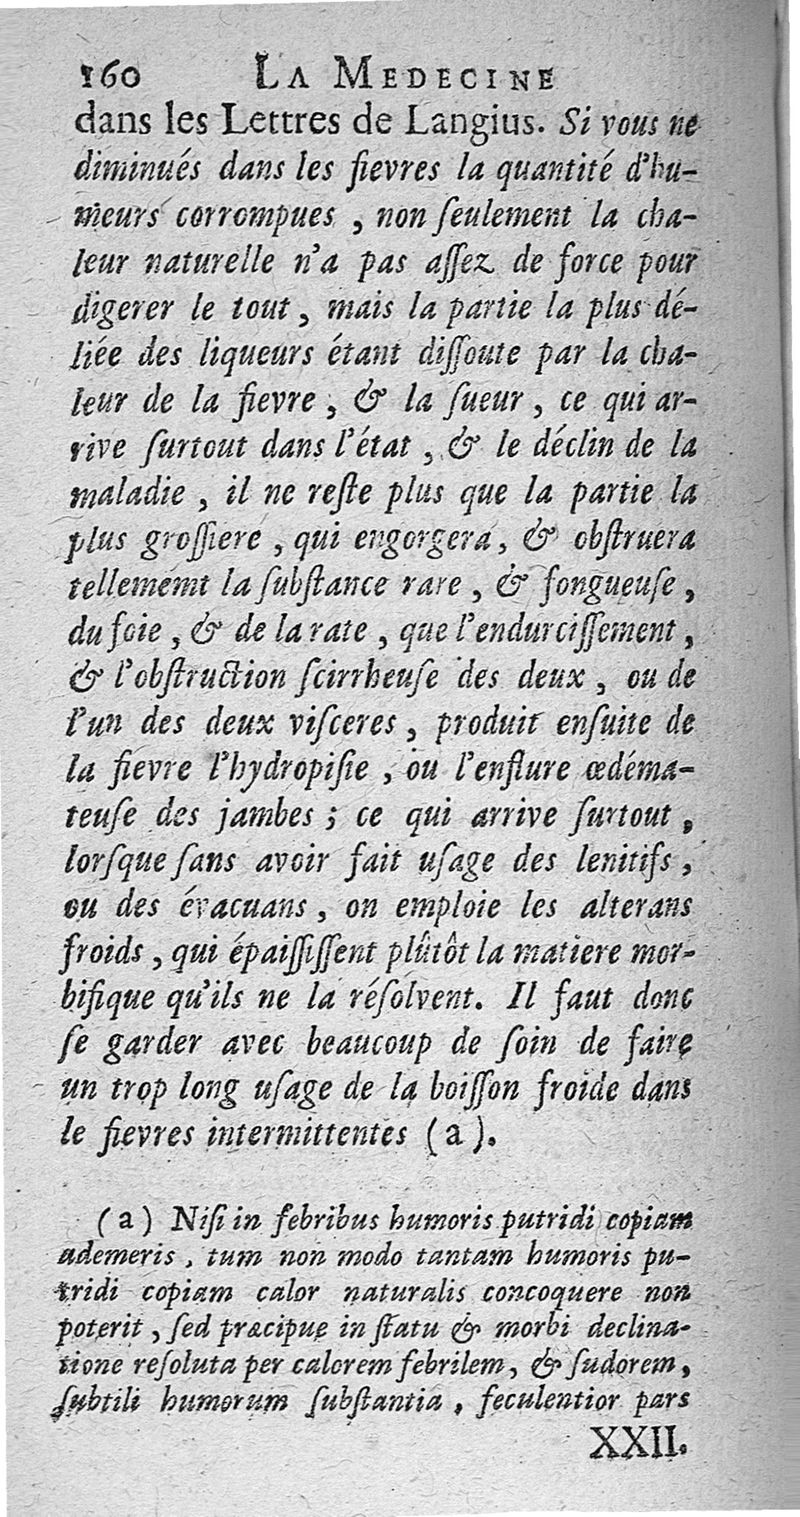 160 LA MEDECINE
dans les Lettres de Langius. Si vous ne
diminués dans les fievres la quantité d'hu-
meurs corrompues, non ſeulement la cha-
leur naturelle n'a pas aſſez de force pour
digerer le tout, mais la partie la plus dé-
liée des liqueurs étant diſſoute par la cha-
leur de la fievre, & la ſueur, ce qui ar-
rive ſurtout dans l'état, & le déclin de la
maladie, il ne reſte plus que la partie la
plus groſſiere, qui engorgera, & obſtruera
tellememt la ſubſtance rare, & fongueuſe,
du foie, & de la rate, que l'endurciſſement,
& l'obſtruction ſcirrheuſe des deux, ou de
l'un des deux viſceres, produit enſuite de
la fievre l'hydropiſie, ou l'enflure œdéma-
teuſe des jambes; ce qui arrive ſurtout,
lorſque ſans avoir fait uſage des lenitifs,
ou des évacuans, on emploie les alterans
froids, qui épaiſſiſſent plûtôt la matiere mor-
bifique qu'ils ne la réſolvent. Il faut donc
ſe garder avec beaucoup de ſoin de faire
un trop long uſage de la boiſſon froide dans
le fievres intermittentes (a).
(a) Niſi in febribus humoris putridi copiam
ademeris, tum non modo tantam humoris pu-
tridi copiam calor naturalis concoquere non
poterit, ſed præcipue in ſtatu & morbi declina-
tione reſoluta per calorem febrilem, & ſudorem,
ſubtili humorum ſubſtantia, feculentior pars
XXII.